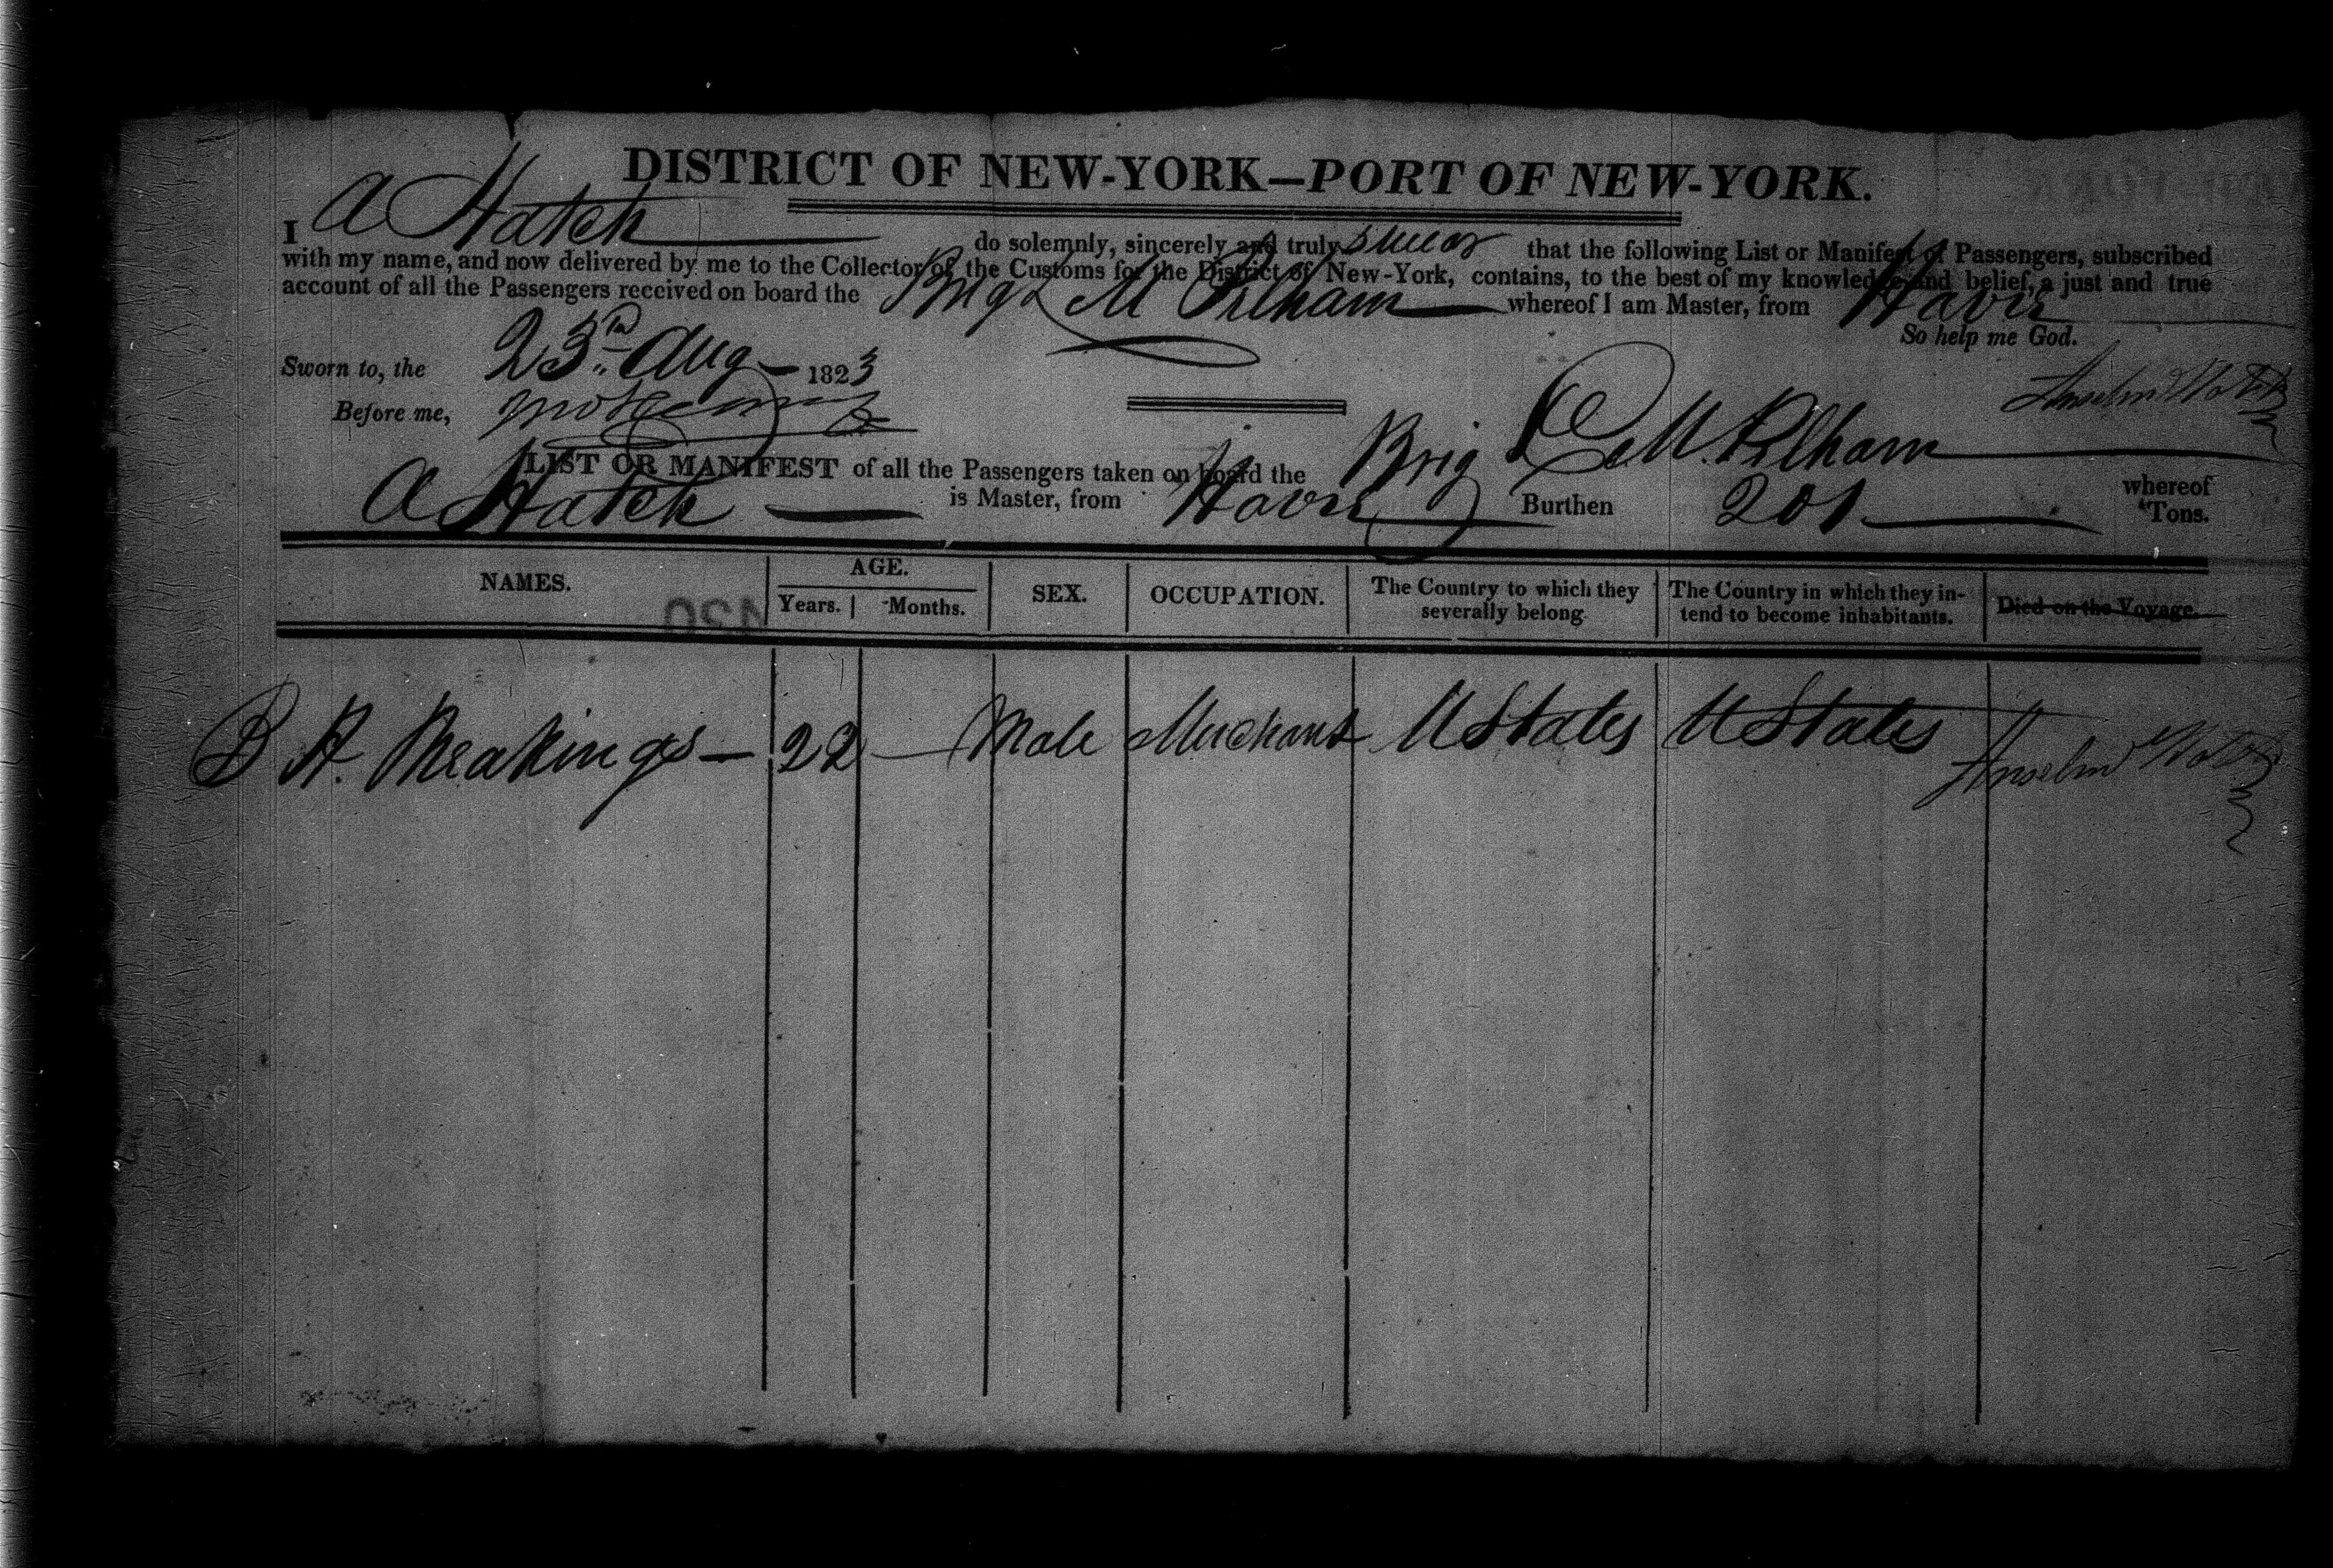 DISTRICT OF NEW-YORK—PORT OF NEW-YORK.
I A Hatch do solemnly, sincerely and truly swear that the following List or Manifest of Passengers, subscribed
with my name, and now delivered by me to the Collector of the Customs for the District of New-York, contains, to the best of my knowledge and belief, a just and true
account of all the Passengers received on board the Brig L M Pelham whereof I am Master, from Havre
So help me God.
Sworn to, the 23rd Aug 1823
Before me,
Anselm Hatch
LIST OR MANIFEST of all the Passengers taken on board the Brig L. M. Pelham whereof
A Hatch is Master, from Havre Burthen 201 Tons.
NAMES. AGE. SEX. OCCUPATION. The Country to which they severally belong The Country in which they in- tend to become inhabitants. Died on the Voyage.
Years. Months.
B H. Meakings — 22 — Male Merchant U States U States
Anselm Hatch